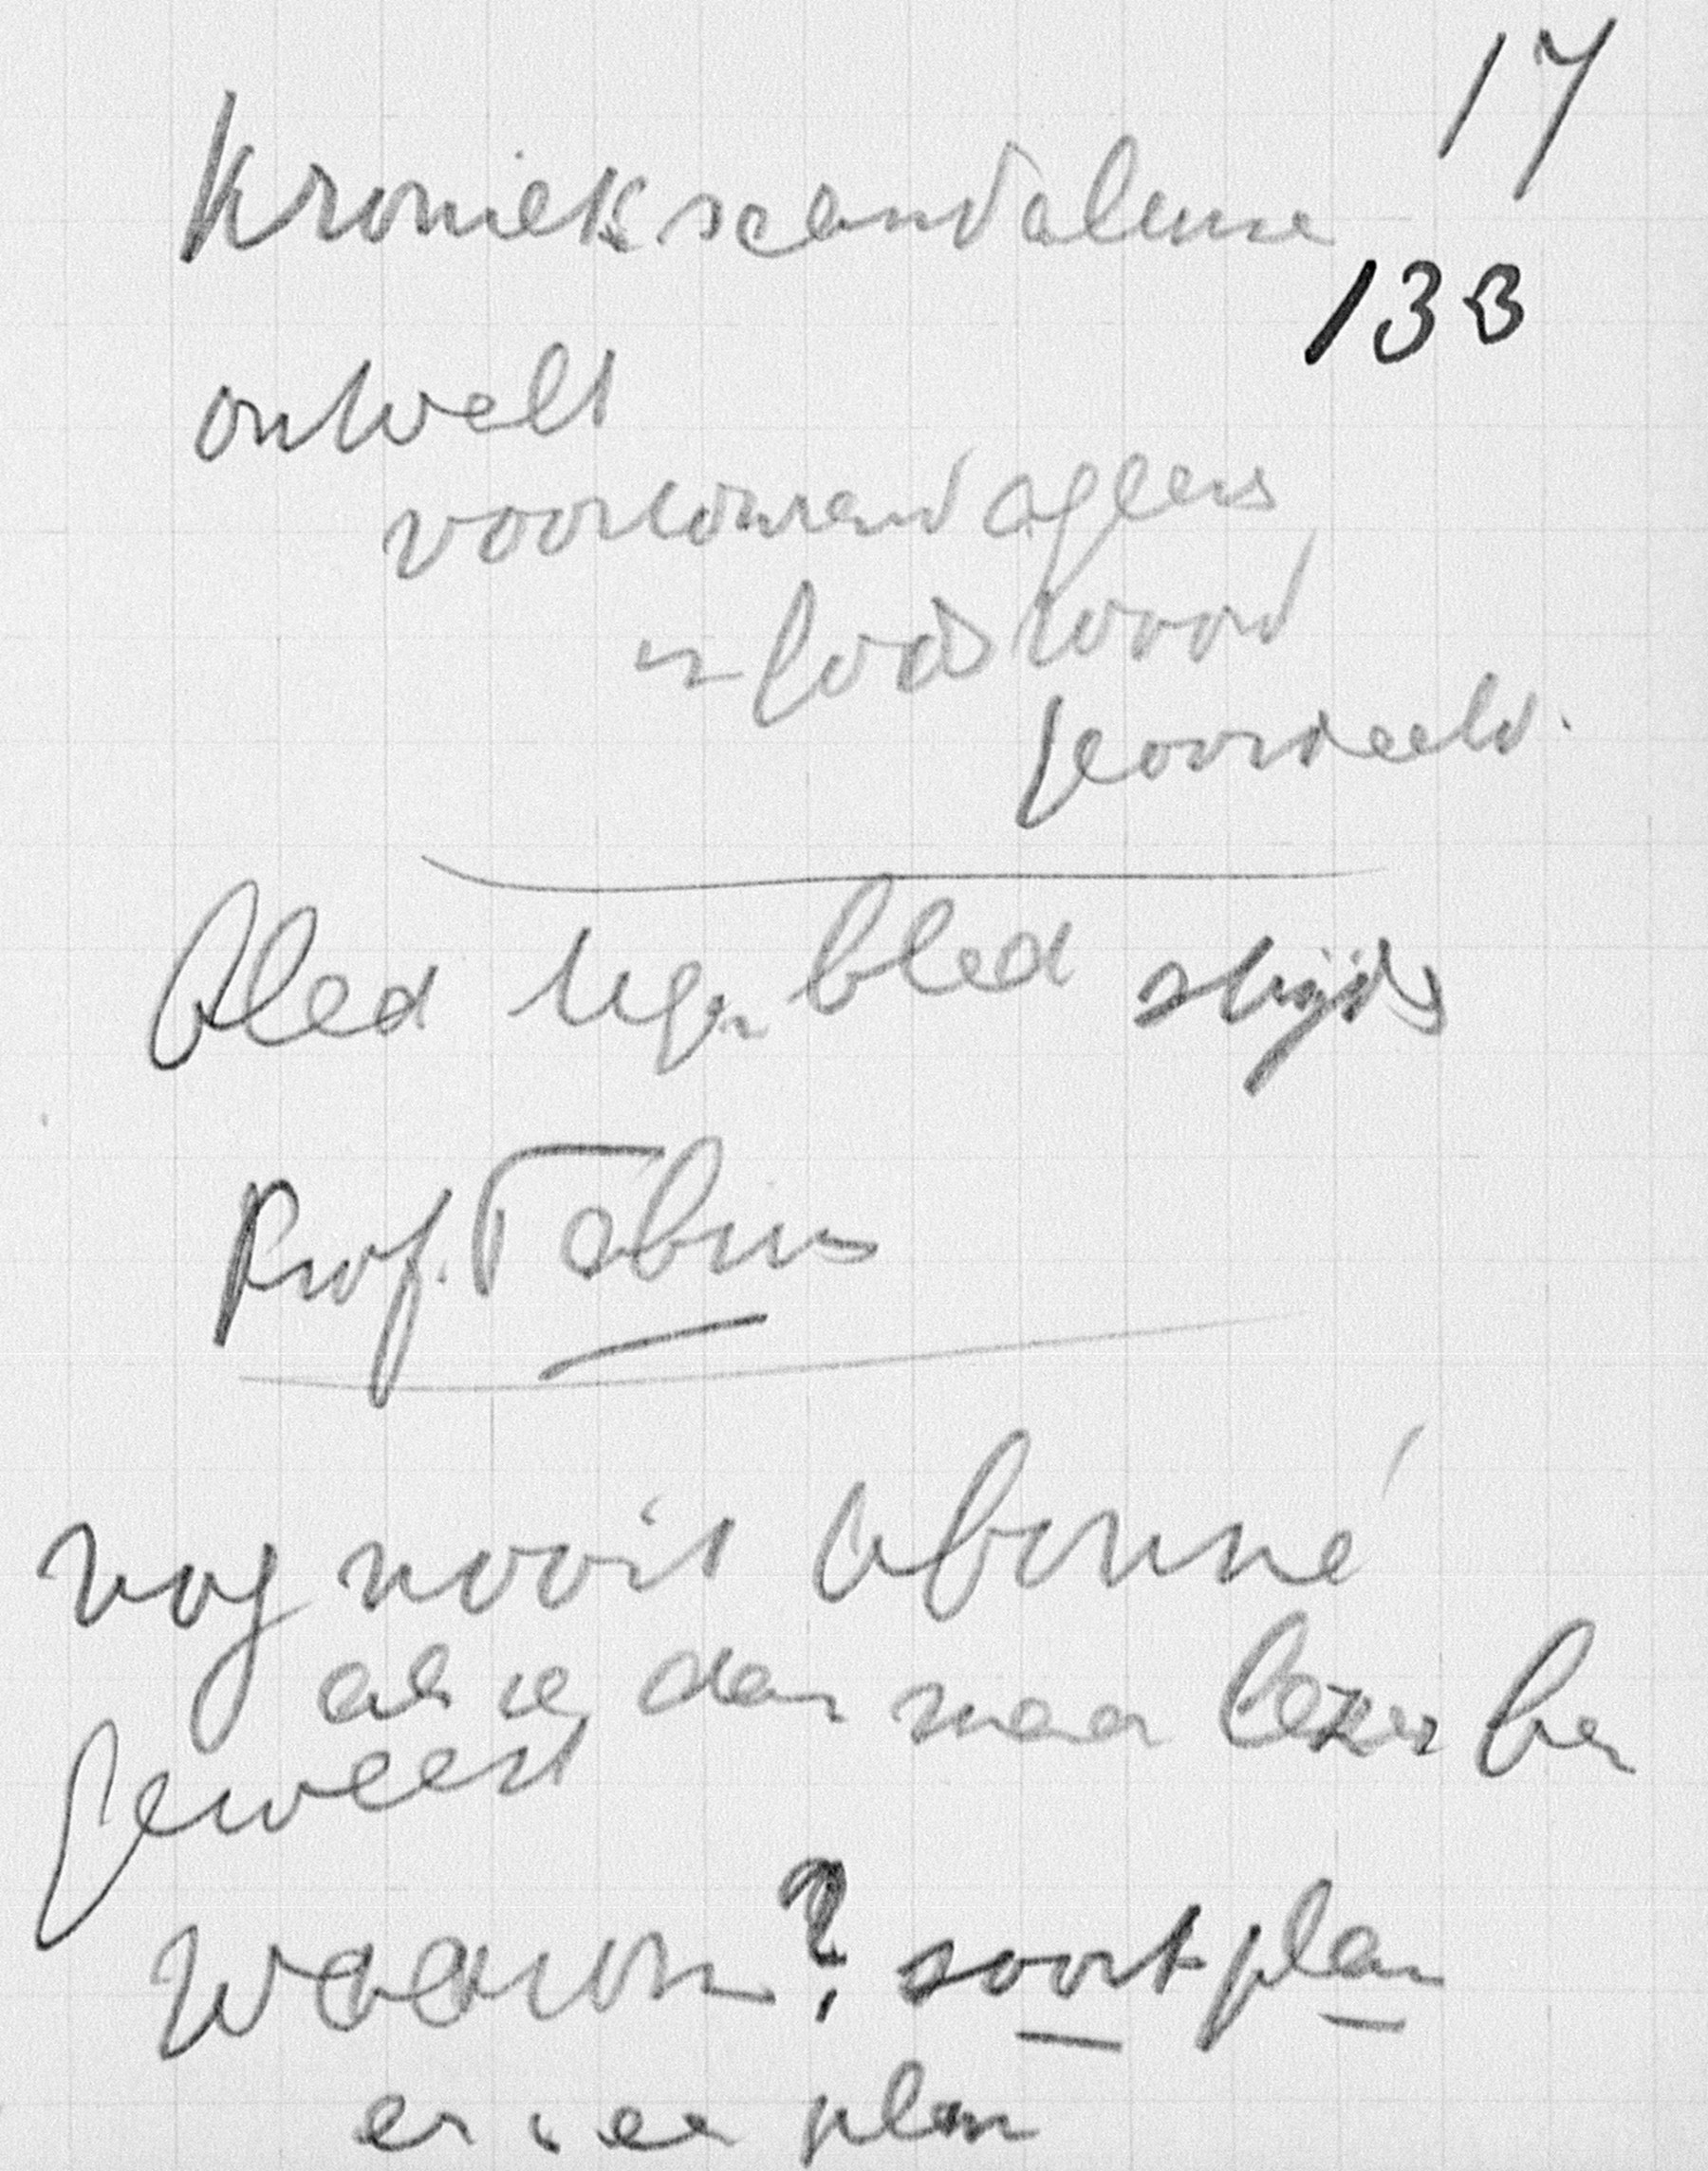 17
Kroniek scandaleuse
133
ontvelt
voortdurend afgleus
en foes woord
gevoordeeld.
Bled tegen bled strijds
Prof. Tobius
nog nooit abonné
als ie dan maar lezer ben
geweest
Waarom? soort plan
er is een plan